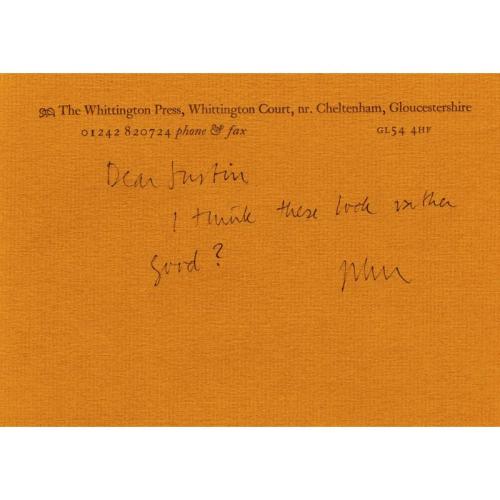 The Whittington Press, Whittington Court, nr. Cheltenham, Gloucestershire
01242 820724 phone & fax GL54 4HF
Dear Justin
I think these look rather
good?
John